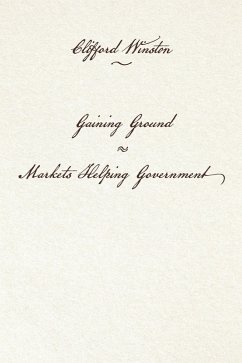 Clifford Winston
~
Gaining Ground
≈
Markets Helping Government